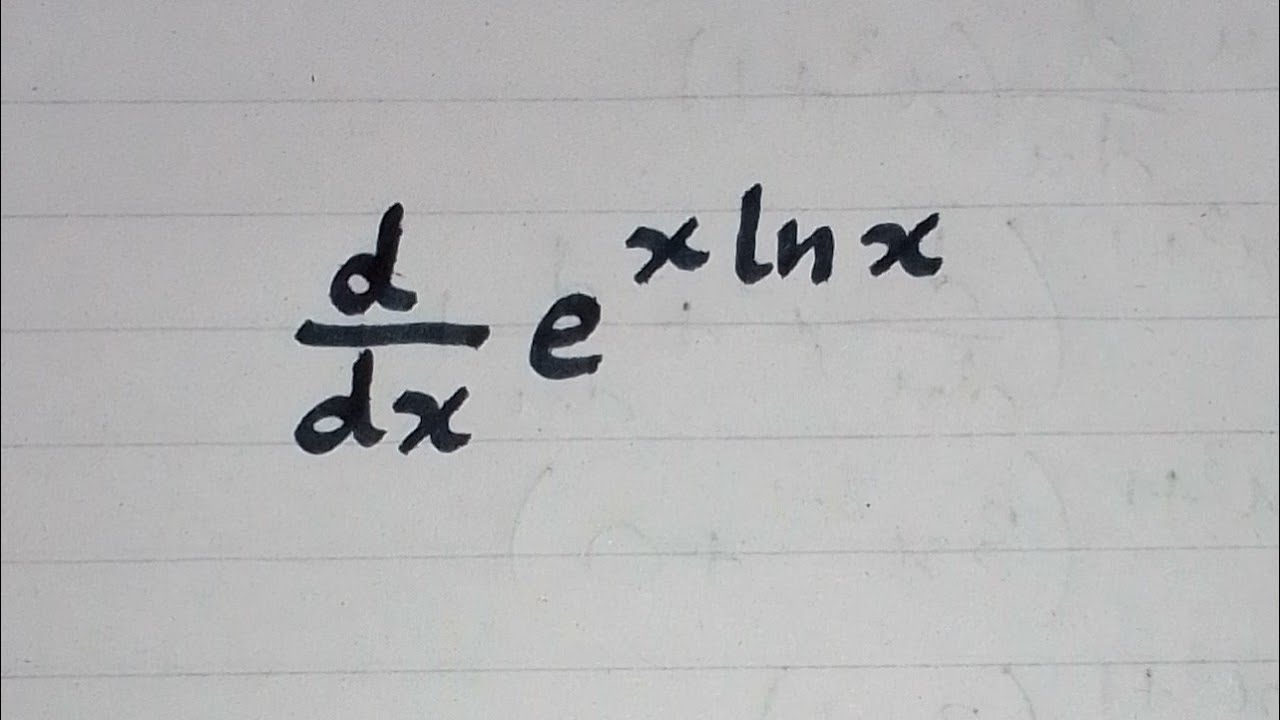 d/dx e^{x ln x}